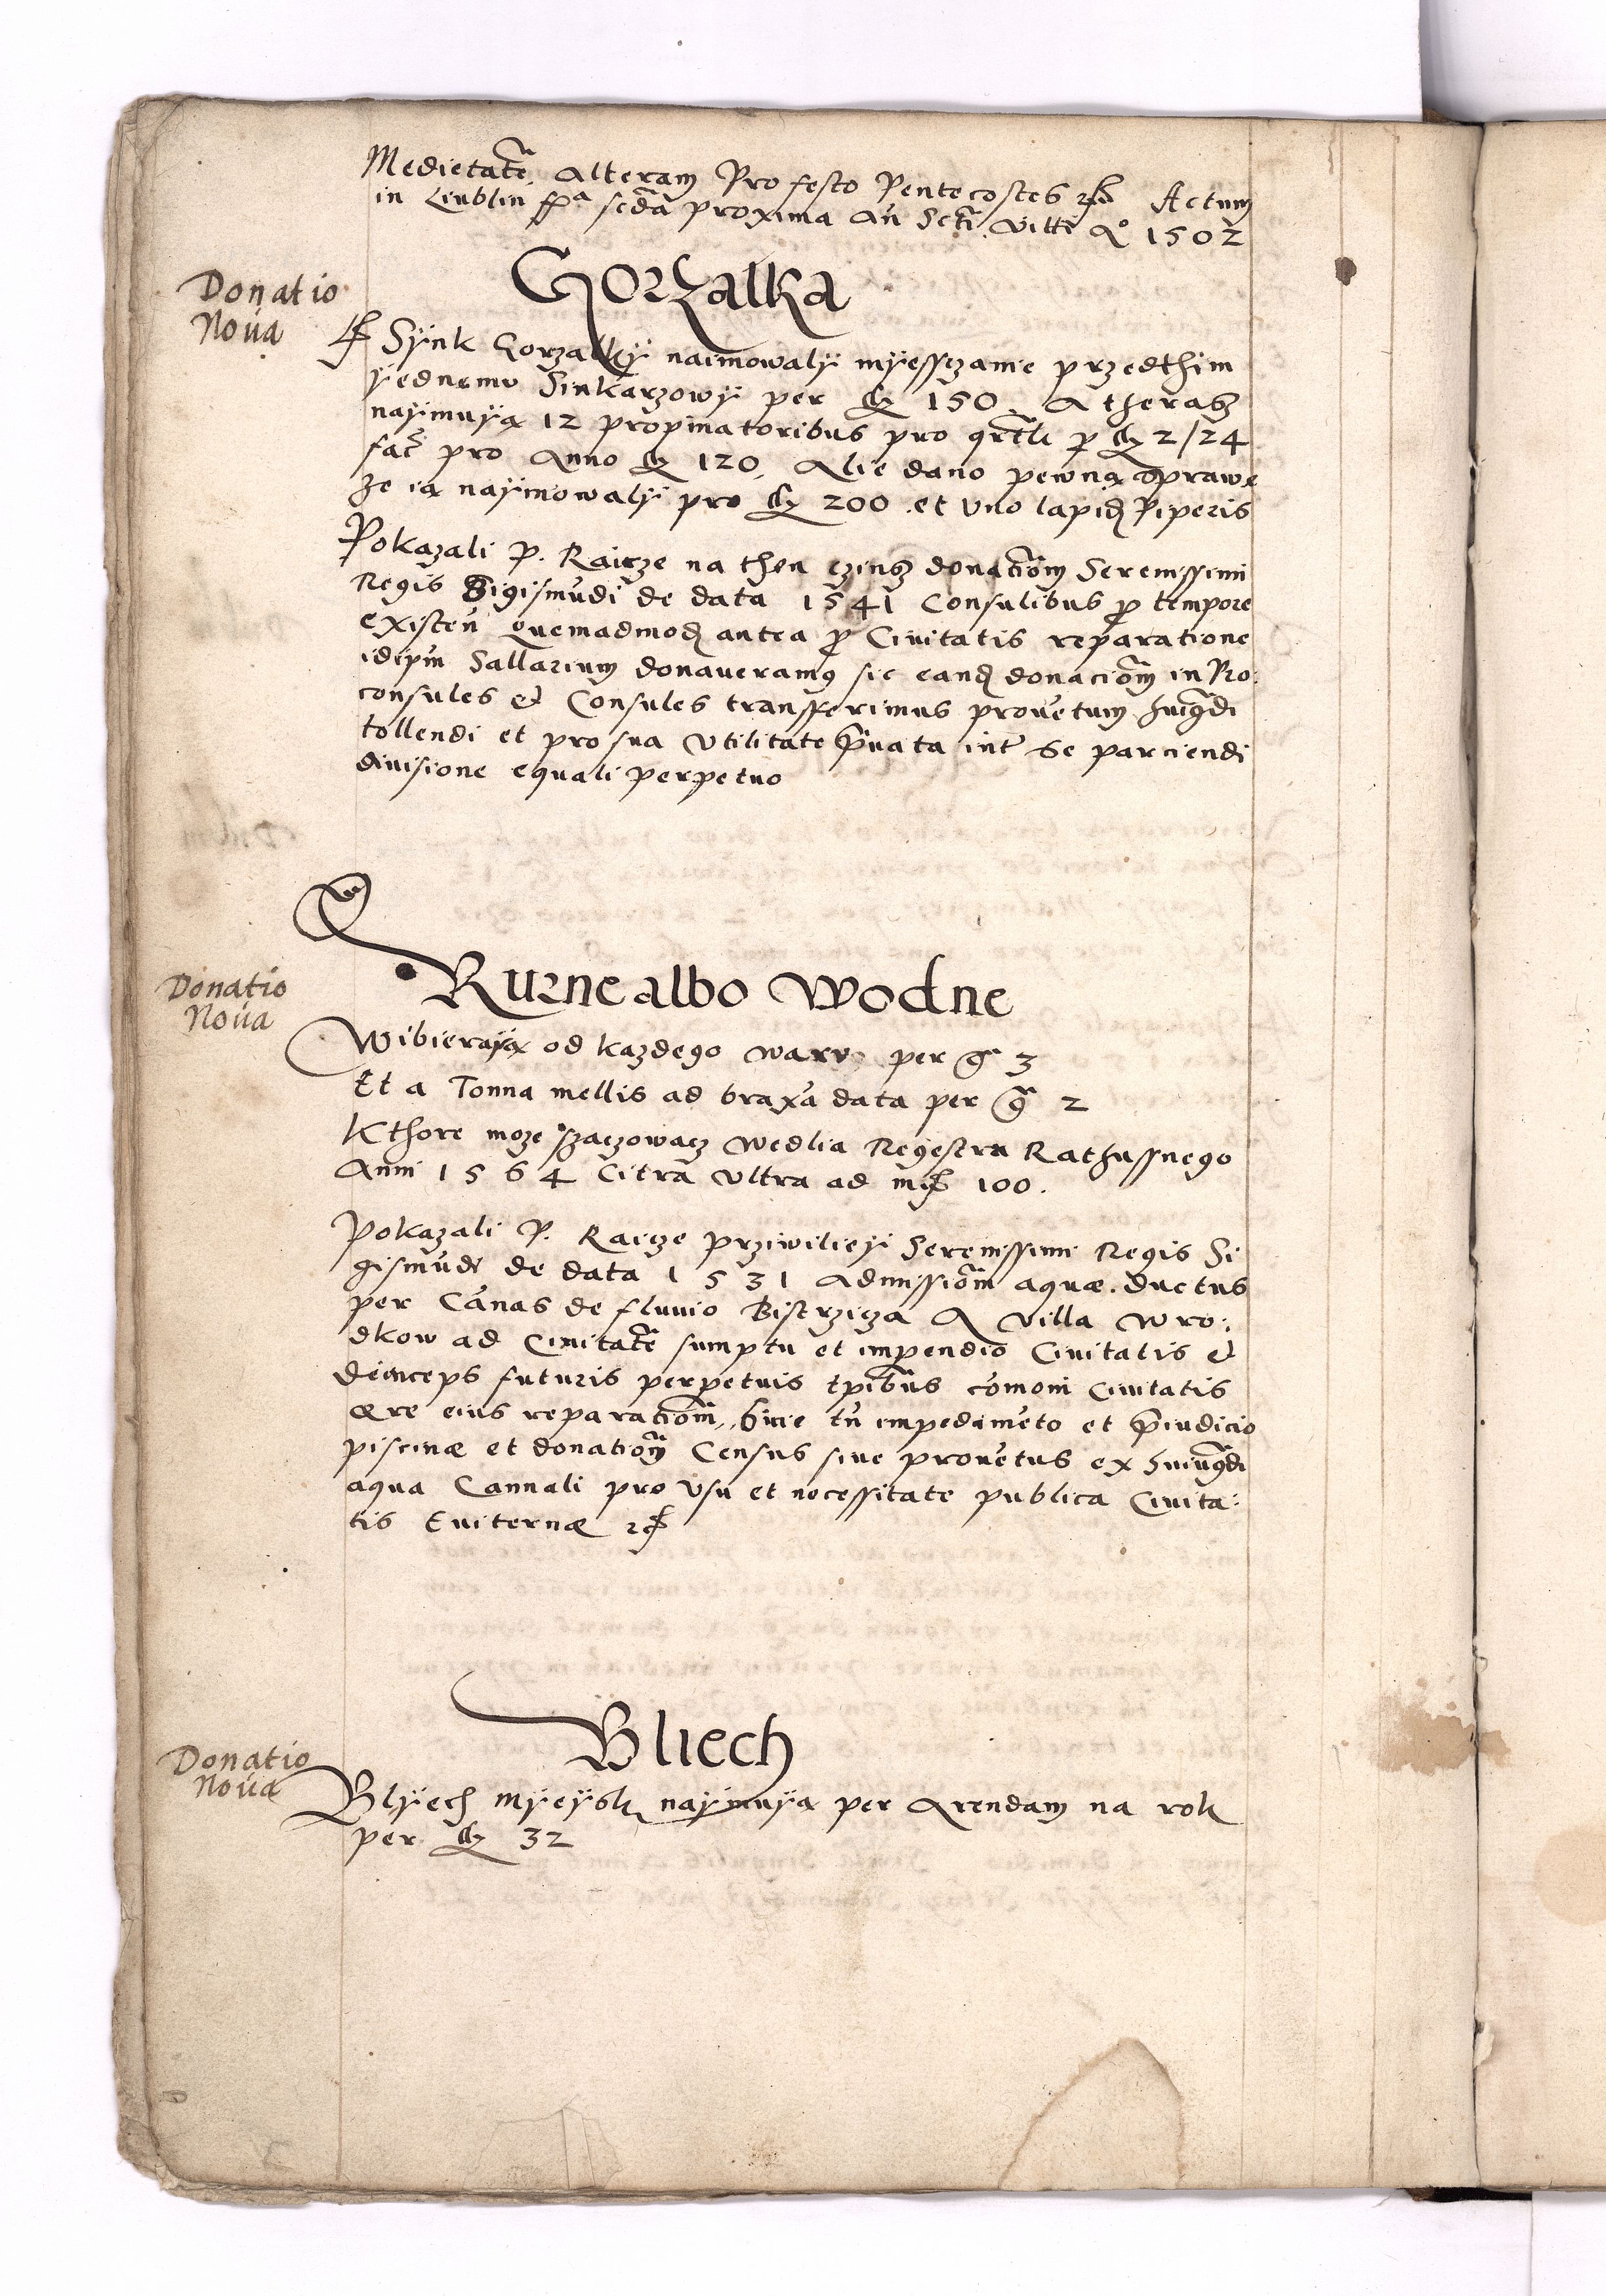 Medietatē Alteram Pro festo Pentecostes Actum
in Liublin fr̄a secd̄a proxima an̄ Sct̄i Vitti Aº 1502
Donatio
Noua
Gorzalka
Sÿnk Gorzalkÿ naimowalÿ mÿessczanie przedthim
ÿednemu Sinkarzowÿ per fl 150. A therasz
naÿmuÿą 12 propinatoribus pro qrtli p fl 2/24
fac̄ pro Anno fl 120, Alie dano pewną sprawę
ze ią naÿmowalÿ pro fl 200 et Vno lapid Piperis
Pokazali P. Raicze na then czinsz donatiom̄ Serenissimi
Regis Sigismūdi de data 1541 Consulibus p tempore
existen̄ Quemadmod antea p Ciuitatis reparatione
idipm̄ Sallarium donaueramus sic eand donaciom̄ in Pro:
consules et Consules transferimus prouētum huiōdi
tollendi et pro sua Vtilitate p̄uata int̄ se parciendi
diuisione equali perpetuo
Donatio
Noua
Rurne albo Wodne
Wibieraÿą od kazdego waru per g̃ 3
Et a Tonna mellis ad braxā data per g̃ 2
Kthore moze szaczowacz wedlia Regestru Rathussnego
Anni 1564 Citra Vltra ad mrf 100.
Pokazali P. Raicze przÿwilieÿ Serenissimi Regis Si
gismūdi de data 1531 Admissiom̄ aquæ ductus
per Cānas de fluuio Bistrzicza A Villa Wro:
dkow ad Ciuitatē sumptu et impendio Ciuitatis et
deinceps futuris perpetuis tpibus com̄oni Ciuitatis
ære eius reparatiom̄, Sine tn̄ impedimēto et p̄iudicio
piscinæ et donatiom̄ Census siue prouētus ex huiūdi
aqua Cannali pro Vsu et necessitate publica Ciuita:
tis Euiternæ
Donatio
Noua
Bliech
Blÿech mÿeÿsk naÿmuÿą per Arendam na rok
per fl 32